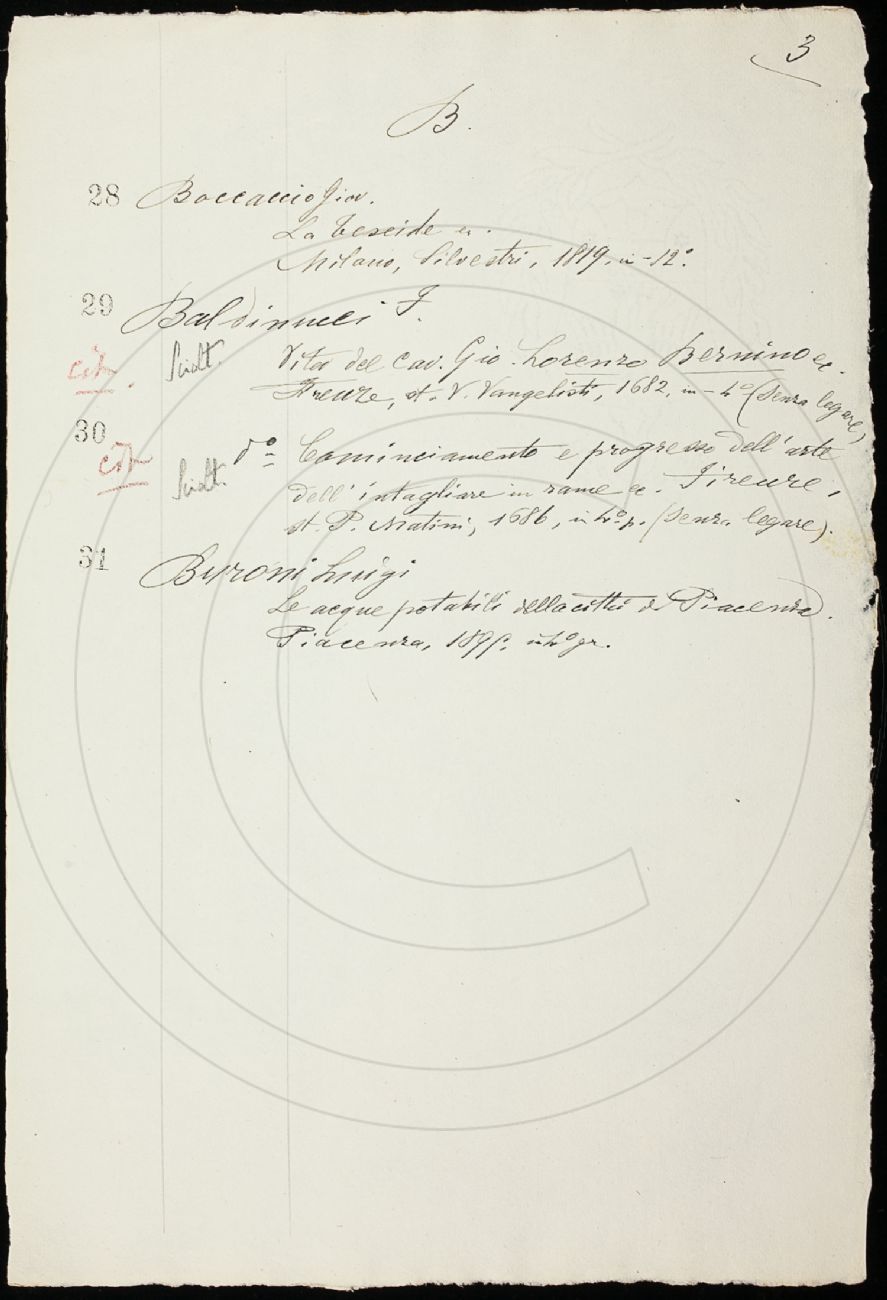 3
B.
28 Boccaccio Giov.
La Teseide ec.
Milano, Silvestri, 1819, in-12º.
29 Baldinucci F.
Scialt. Vita del Cav. Gio. Lorenzo Bernino ec.
Firenze, st. V. Vangelisti, 1682, in-4º (senza legare)
30
Scialt. dº Cominciamento e progresso dell'arte
dell'intagliare in rame ec. Firenze,
st. P. Matini, 1686, in 4º p. (senza legare).
31 Buroni Luigi
Le acque potabili della città di Piacenza.
Piacenza, in 4º gr.